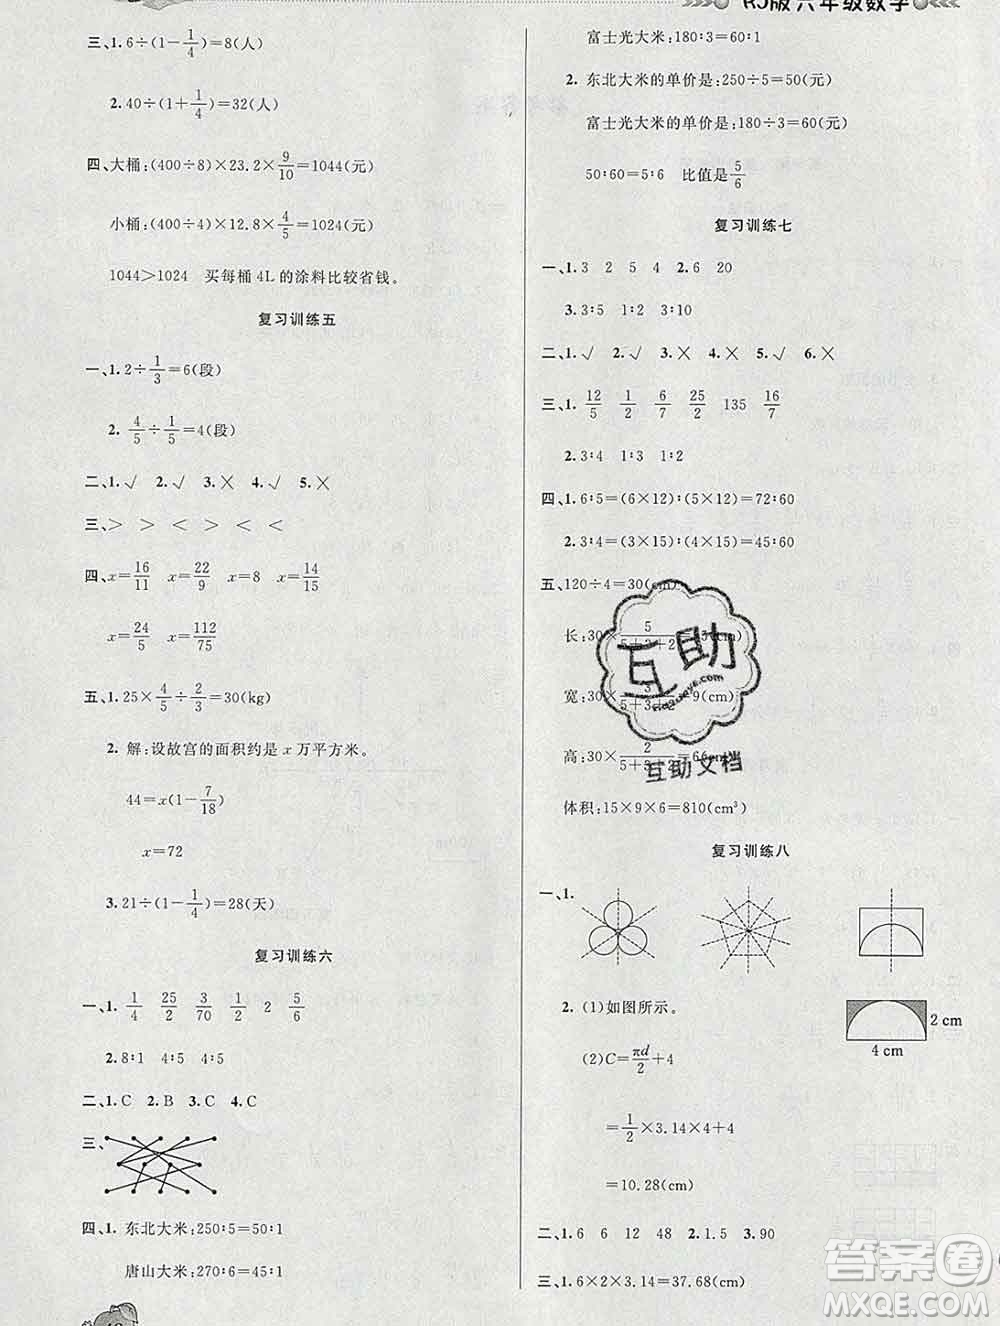 RJ版六年级数学
三、1. 6÷(1−1/4)=8(人)
2. 40÷(1+1/4)=32(人)
四、大桶:(400÷8)×23.2×9/10=1044(元)
小桶:(400÷4)×12.8×4/5=1024(元)
1044>1024 买每桶 4L 的涂料比较省钱。
复习训练五
一、1. 2÷1/3=6(段)
2. 4/5÷1/5=4(段)
二、1.√ 2.√ 3.× 4.√ 5.×
三、> > < > < <
四、x=16/11 x=22/9 x=8 x=14/15
x=24/5 x=112/75
五、1. 25×4/5÷2/3=30(kg)
2. 解:设故宫的面积约是 x 万平方米。
44=x(1−7/18)
x=72
3. 21÷(1−1/4)=28(天)
复习训练六
一、1. 1/4 25/2 3/70 1/2 2 5/6
2. 8∶1 4∶5 4∶5
二、1. C 2. B 3. C 4. C
三、
四、1. 东北大米:250∶5=50∶1
唐山大米:270∶6=45∶1
富士光大米:180∶3=60∶1
2. 东北大米的单价是:250÷5=50(元)
富士光大米的单价是:180÷3=60(元)
50∶60=5∶6 比值是5/6
复习训练七
一、1. 3 2 5 4 2. 6 20
3. 3∶5 1∶2 3∶10
二、1.√ 2.√ 3.× 4.× 5.× 6.×
三、1. 12/5 1/2 6/7 25/2 135 16/7
2. 3∶4 1∶3 3∶4
四、1. 6∶5=(6×12)∶(5×12)=72∶60
2. 3∶4=(3×15)∶(4×15)=45∶60
五、120÷4=30(cm)
长:30×5/5+3+2=15(cm)
宽:30×3/5+3+2=9(cm)
高:30×2/5+3+2=6(cm)
体积:15×9×6=810(cm³)
互助
互助文档
复习训练八
一、1.
2. (1)如图所示。
2 cm
4 cm
(2)C=πd/2+4
=1/2×3.14×4+4
=10.28(cm)
二、1. 6 6 12 48 2. 1.5 3. 90
三、1. 6×2×3.14=37.68(cm)
答案圈
MXQE.COM